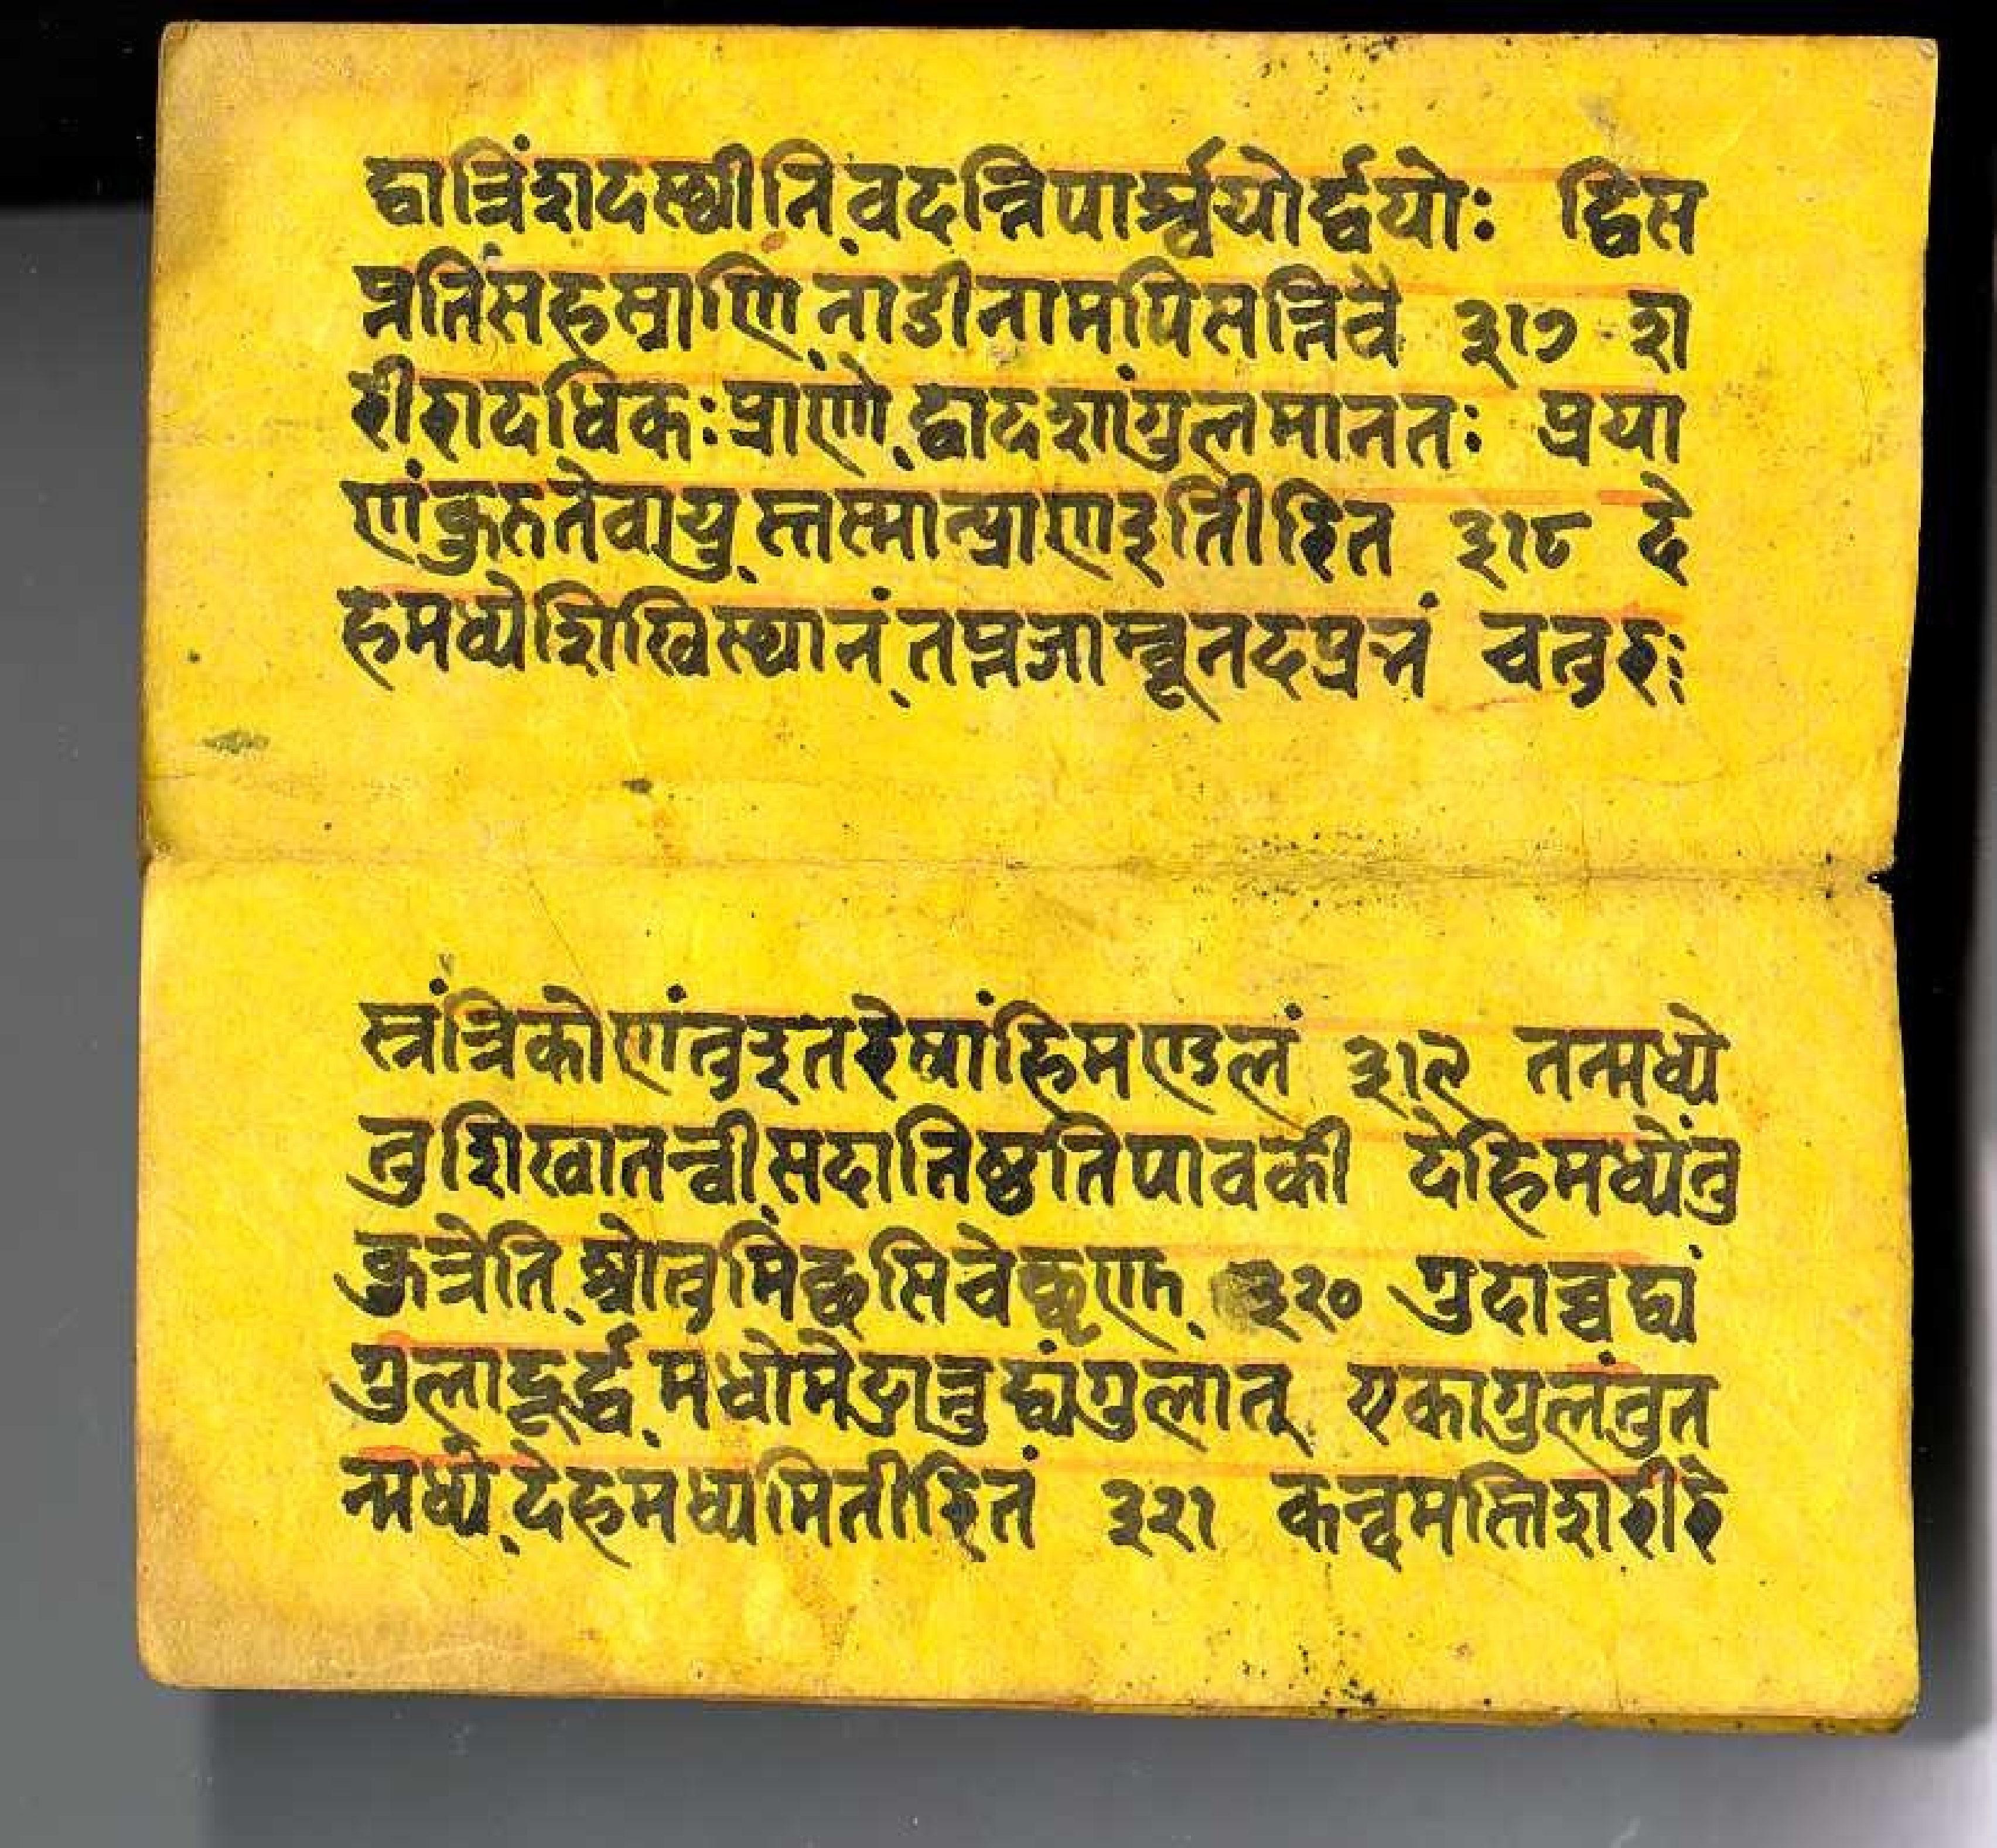 द्वात्रिंशदस्थीनि वदन्ति पार्श्वयोर्द्वयोः द्विस
प्ततिंसहस्राणि नाडीनामपिसन्तिवै ३१७ श
रीरादधिकःप्राणो द्वादशांगुलमानतः प्रया
णंकुरुतेवायु स्तस्मात्प्राणइतीरित ३१८ दे
हमध्येशिखिस्थानं तप्तजाम्बूनदप्रभं चतुरः
स्त्रंत्रिकोणंतुइतरेषांहिमण्डलं ३१९ तन्मध्ये
तुशिखातन्वीसदातिष्ठतिपावकी देहिमध्येंतु
कुत्रेति श्रोतुमिंछसिचेछृणु ३२० गुदात्तुद्व्यं
गुलादूर्द्ध्व मधोमेढ्रात्तुद्व्यंगुलात् एकागुलंतुत
न्मध्ये देहमध्यमितीरितं ३२१ कन्दमस्तिशरीरे